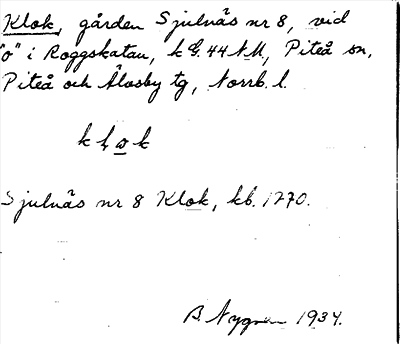 Klok, gården Sjulnäs nr 8, vid
"o" i Roggskatan, k G. 44 N.M., Piteå sn,
Piteå och Älvsby tg, Norrb. l.
k l o k
Sjulnäs nr 8 Klok, kb. 1770.
B. Nygren 1934.